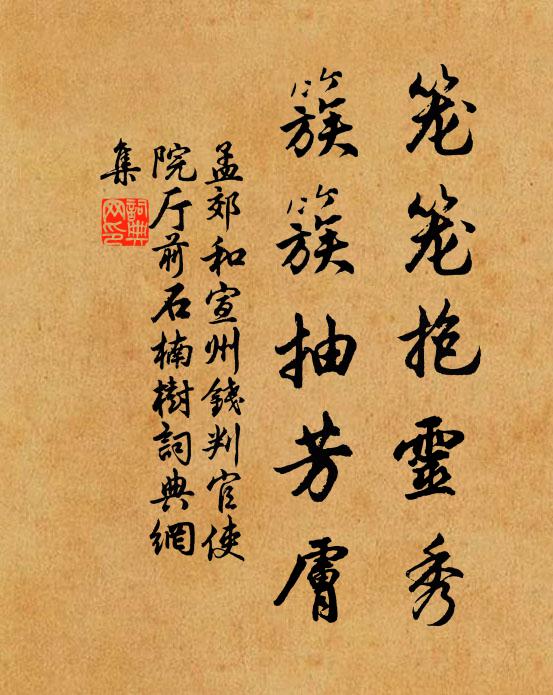 笼笼抱灵秀
簇簇抽芳膚
孟郊和宣州錢判官使
院厅前石楠樹詞典網
集
詞典
网印